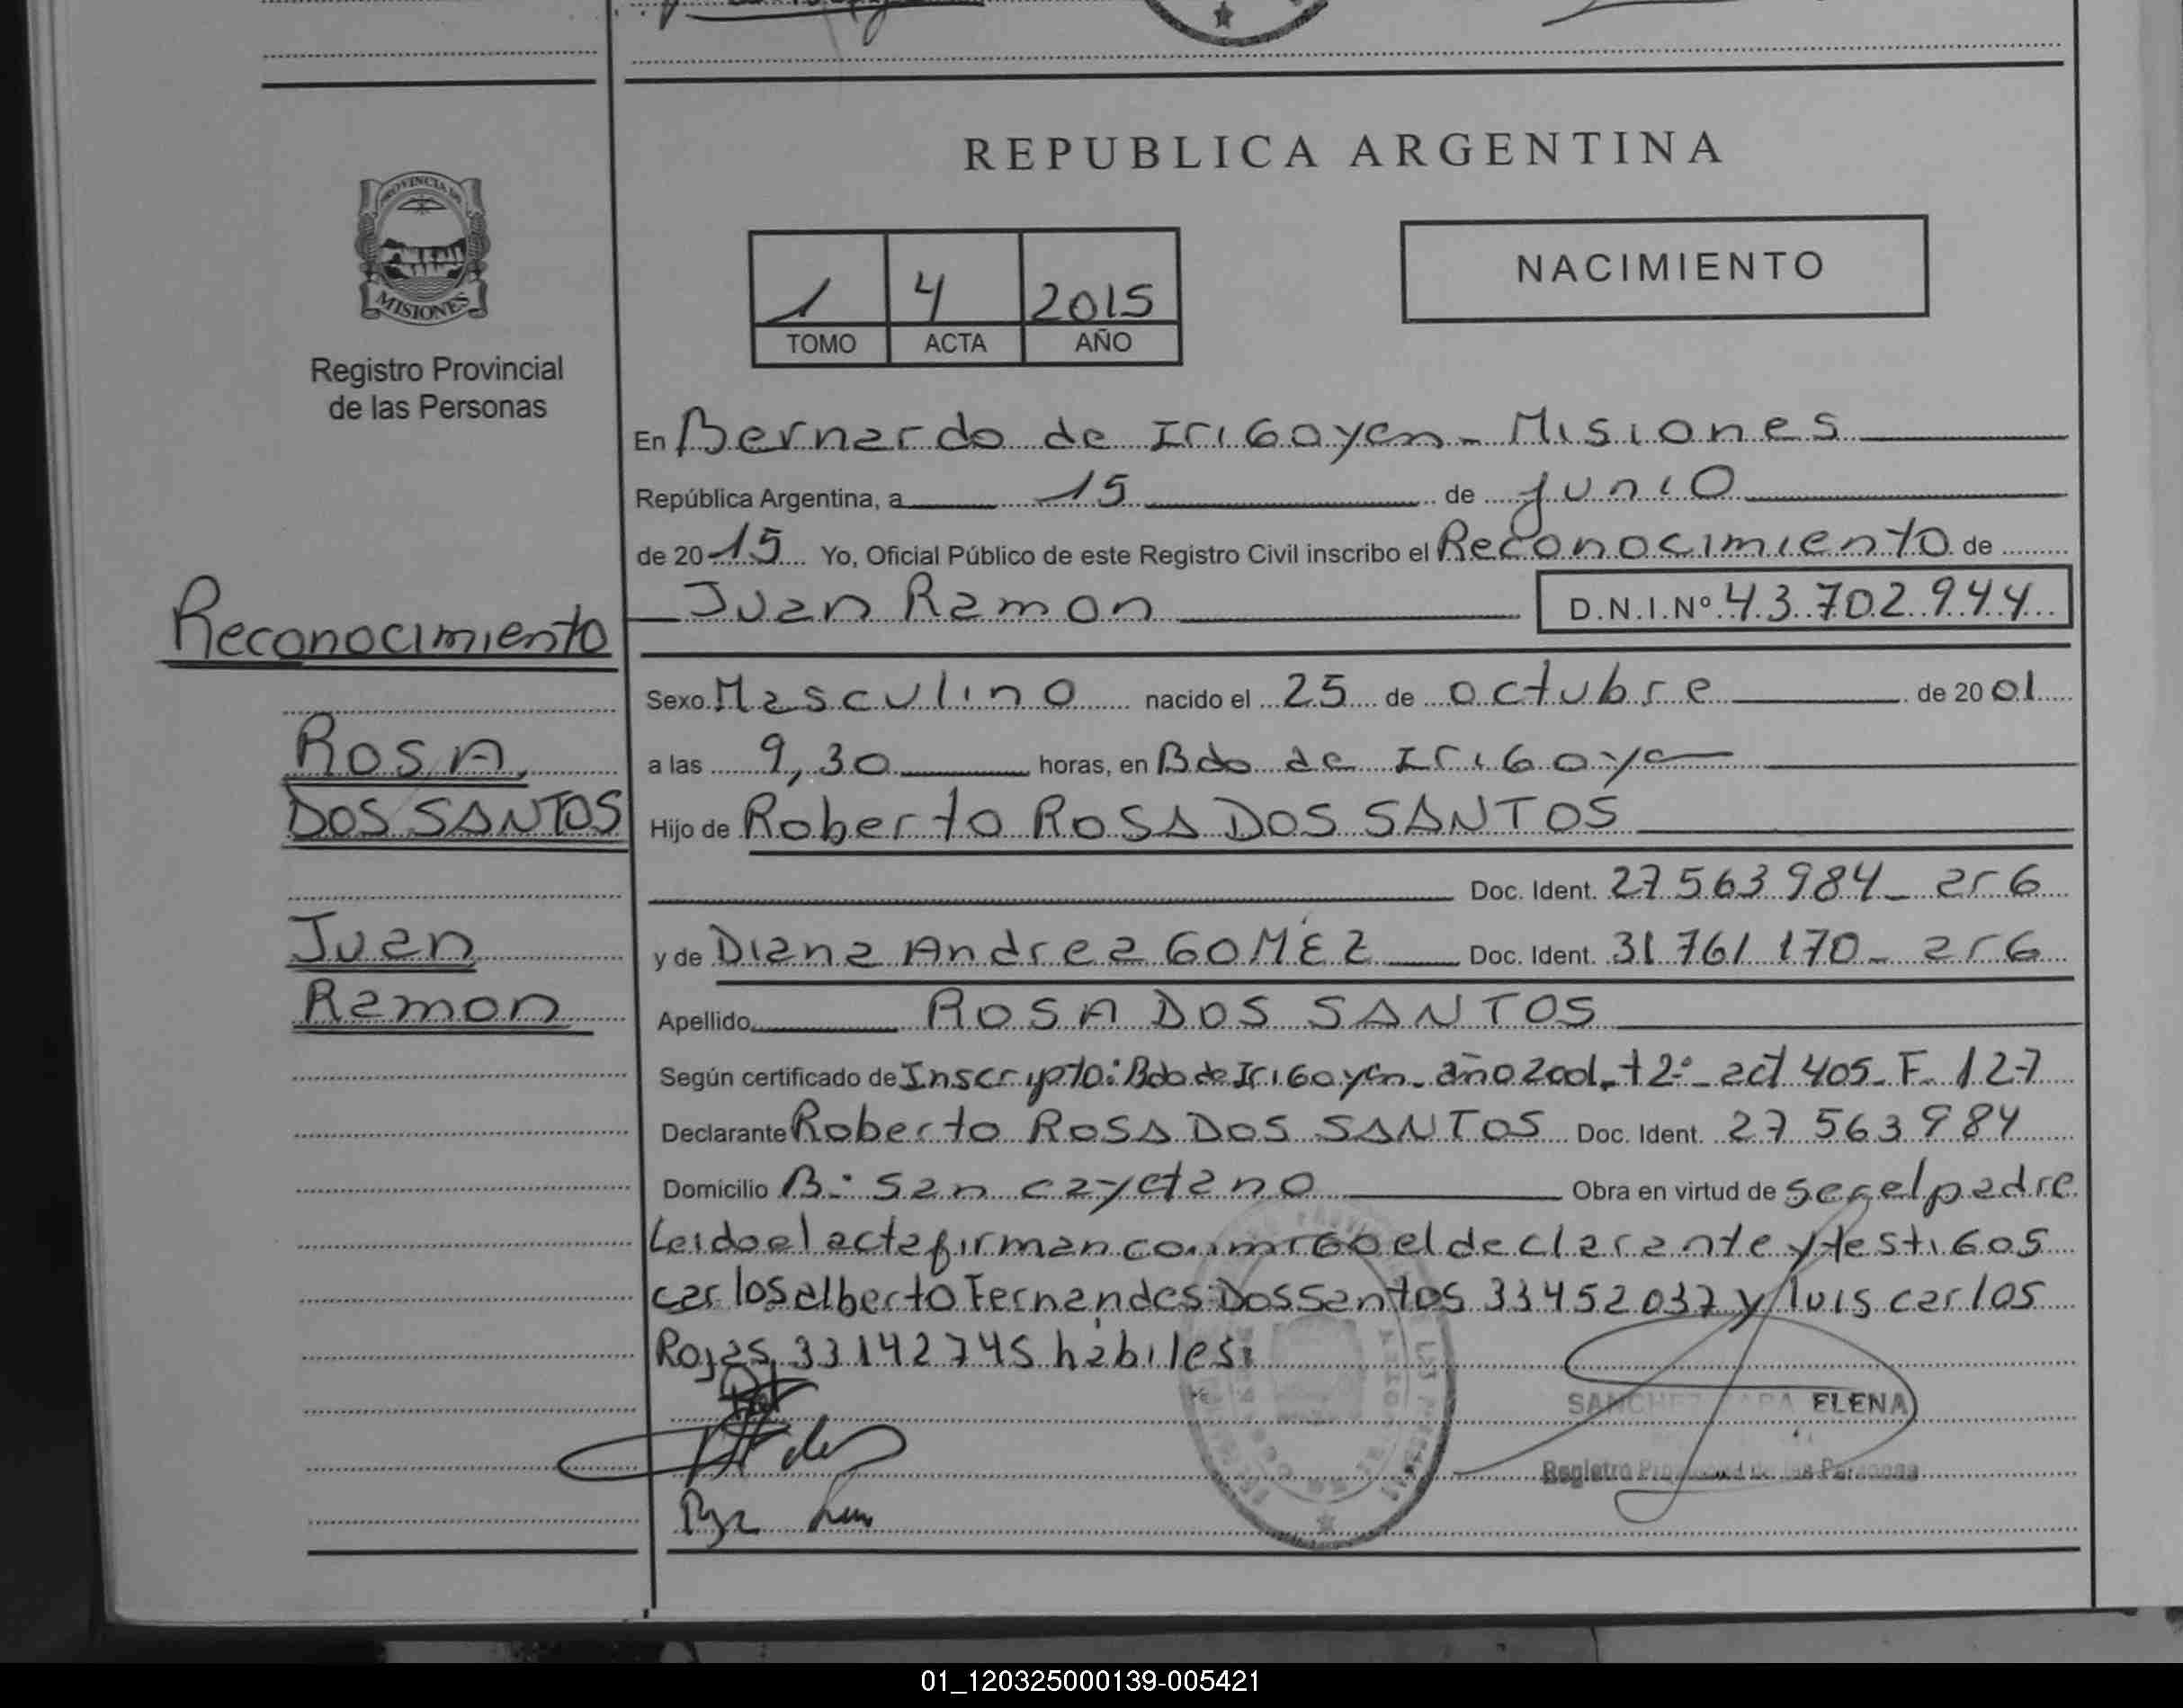 REPUBLICA ARGENTINA
PROVINCIA DE
MISIONES
Registro Provincial
de las Personas
1 4 2015
TOMO ACTA AÑO
NACIMIENTO
En Bernardo de Irigoyen - Misiones
República Argentina, a 15 de junio
de 2015 Yo, Oficial Público de este Registro Civil inscribo el Reconocimiento de
Juan Ramon D.N.I.Nº 43.702.944
Reconocimiento
Sexo Masculino nacido el 25 de octubre de 2001
ROSA
a las 9,30 horas, en Bdo de Irigoye
DOS SANTOS
Hijo de Roberto ROSA DOS SANTOS
Doc. Ident. 27563984 - arg
Juan
y de Diana Andrea GOMEZ Doc. Ident. 31761170 - arg
Ramon
Apellido ROSA DOS SANTOS
Según certificado de Inscripto: Bdo de Irigoyen - año 2001 - t 2º - act 405 - F. 127
Declarante Roberto ROSA DOS SANTOS Doc. Ident. 27563984
Domicilio Bº San cayetano Obra en virtud de ser el padre
Leido el acta firman conmigo el declarante y testigos
carlos alberto Fernandes Dos Santos 33452037 y luis carlos
Rojas 33142745 habiles
SANCHEZ ELENA
Registro Provincial de las Personas
01_120325000139-005421